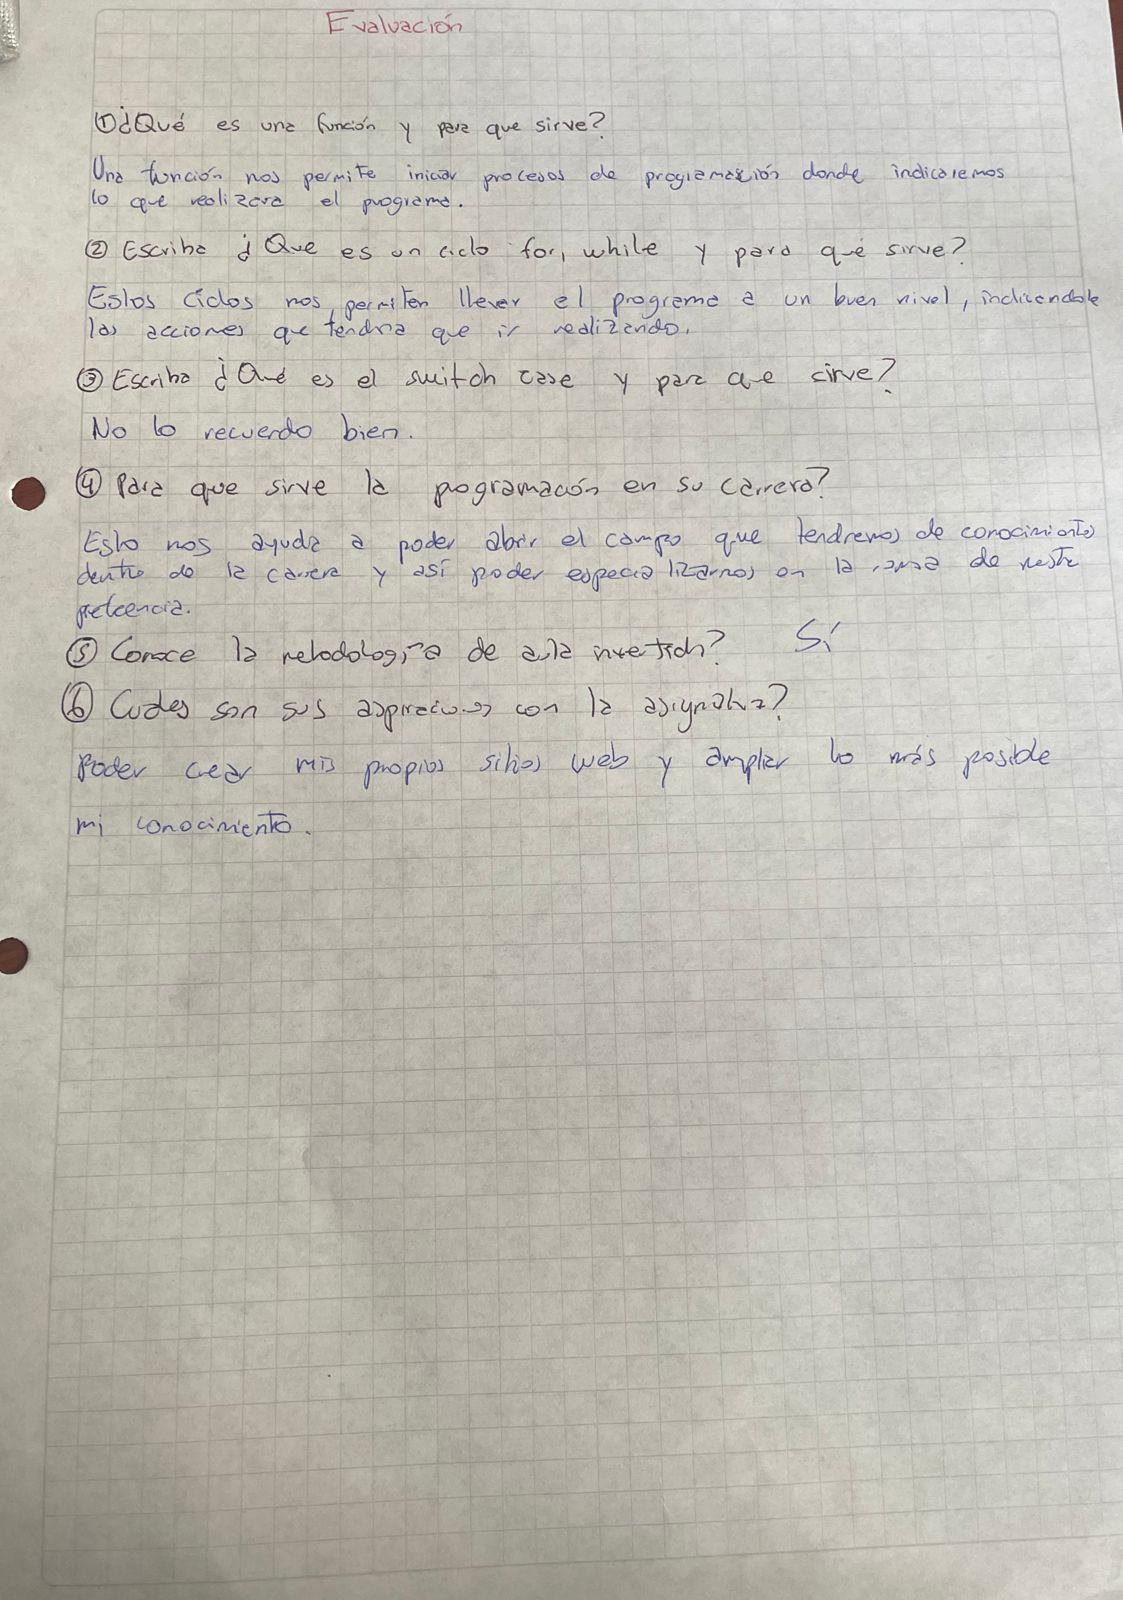 Evaluación
① ¿Qué es una función y para que sirve?
Una función nos permite iniciar procesos de programación donde indicaremos
lo que realizara el programa.
② Escriba ¿Que es un ciclo for, while y para qué sirve?
Estos ciclos nos permiten llevar el programa a un buen nivel, indicandole
las acciones que tendria que ir realizando.
③ Escriba ¿Qué es el switch case y para que sirve?
No lo recuerdo bien.
④ Para que sirve la programación en su carrera?
Esto nos ayuda a poder abrir el campo que tendremos de conocimiento
dentro de la carrera y así poder especializarnos en la rama de
preferencia.
⑤ Conoce la metodología de aula invertida? Sí
⑥ Cuales son sus aspiraciones con la asignatura?
Poder crear mis propios sitios web y ampliar lo más posible
mi conocimiento.